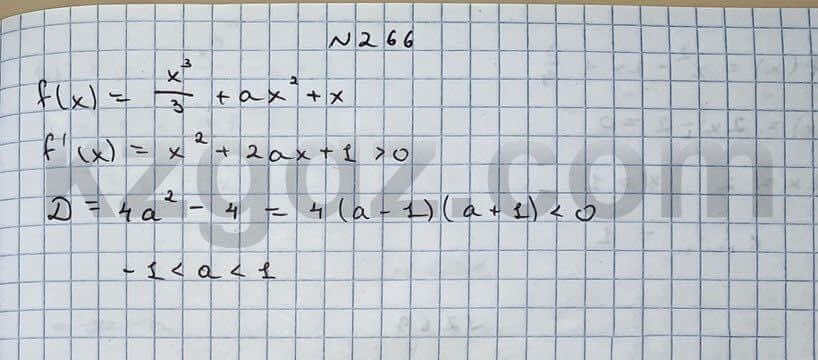 N266
f(x) = x³/3 + ax² + x
f'(x) = x² + 2ax + 1 > 0
D = 4a² - 4 = 4(a - 1)(a + 1) < 0
-1 < a < 1
kzgdz.com